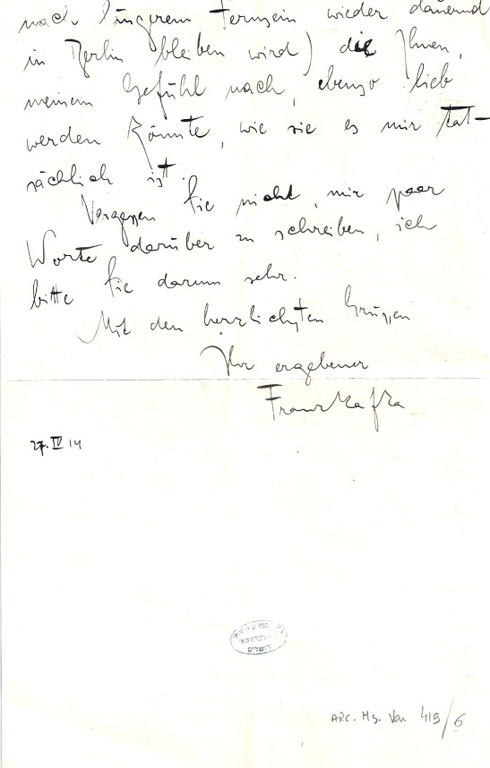 nach längerem Fernsein wieder dauernd
in Berlin bleiben wird) die Ihnen,
meinem Gefühl nach, ebenso lieb
werden könnte, wie sie es mir tat-
sächlich ist.
Vergessen Sie nicht, mir paar
Worte darüber zu schreiben, ich
bitte Sie darum sehr.
Mit den herzlichsten Grüssen
Ihr ergebener
Franz Kafka
27. IV 14
ARC. Ms. Var 419/6